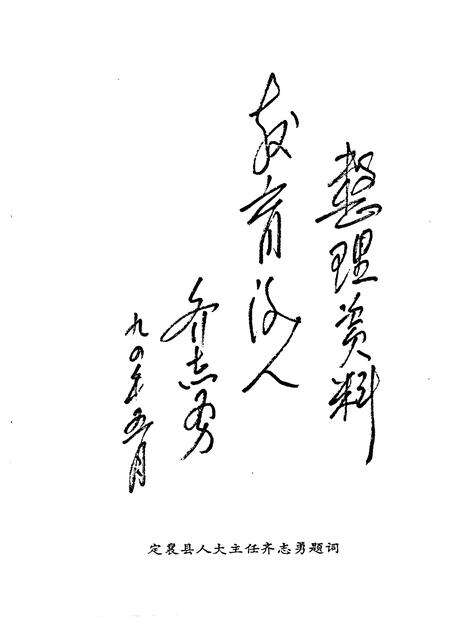 整理资料
教育后人
齐志勇
九四年五月
定襄县人大主任齐志勇题词